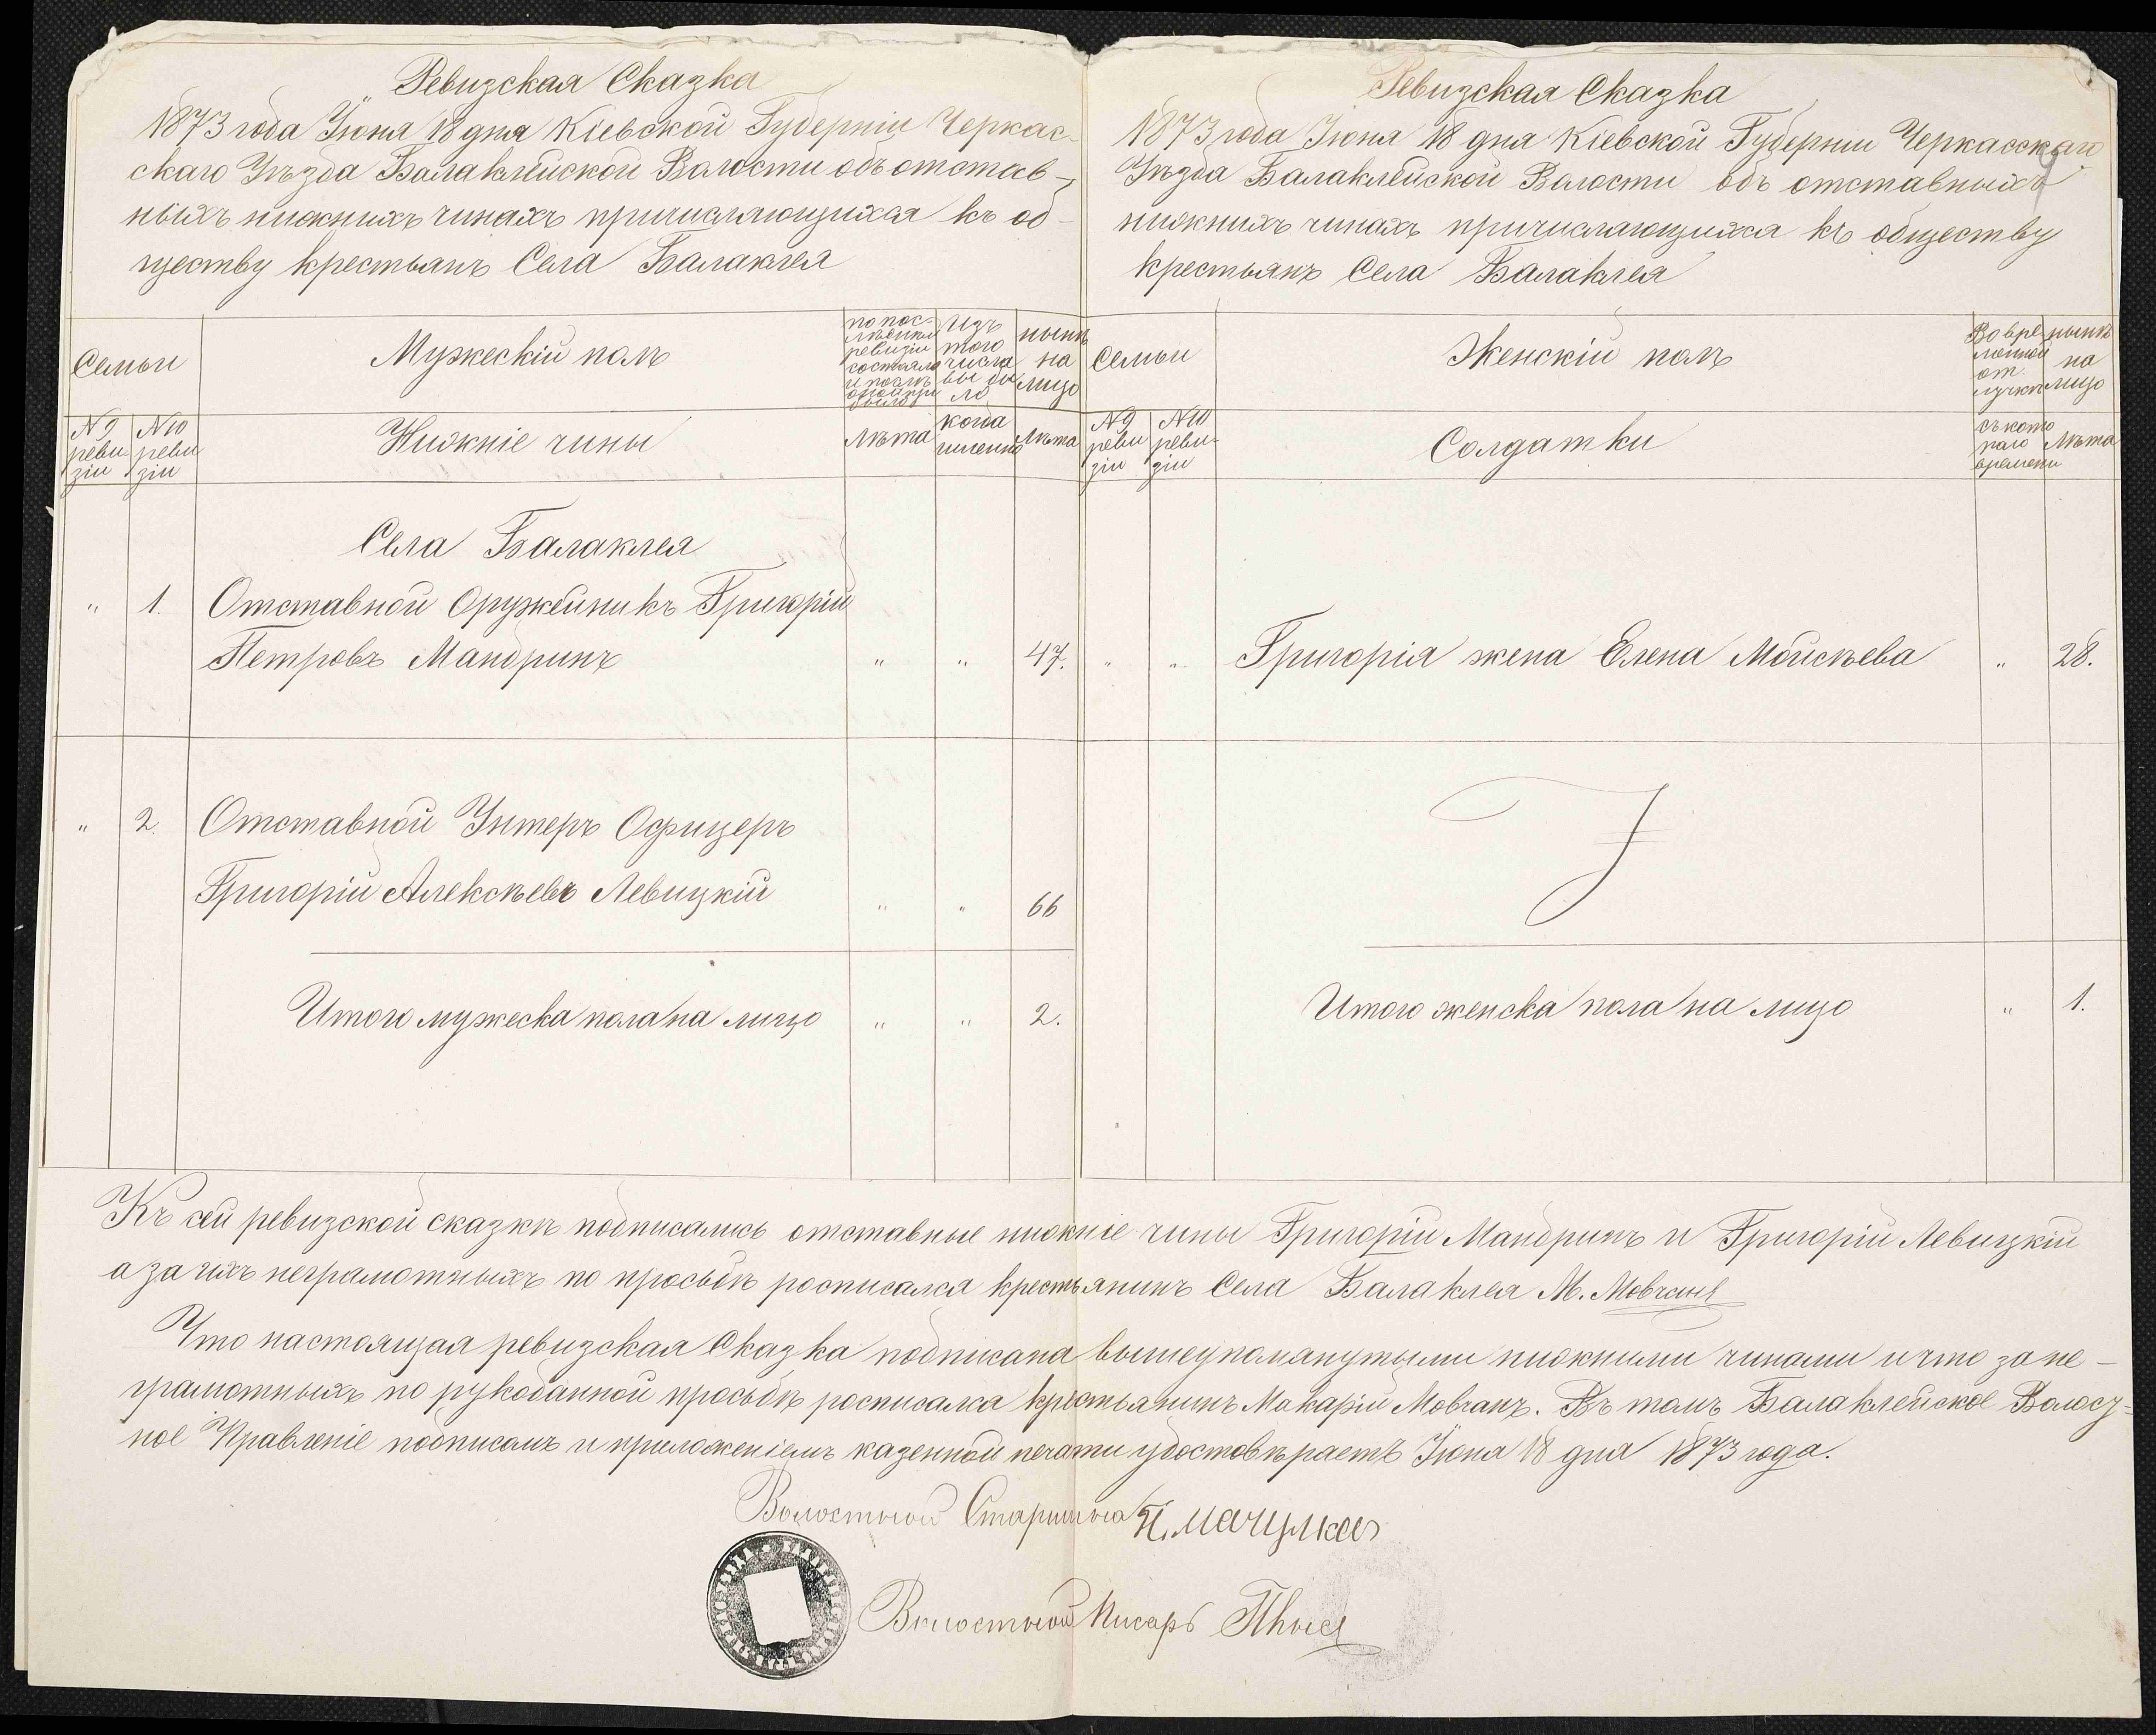 Ревизская Сказка
1873 года Іюня 18 дня Кіевской Губерніи Черкас-
скаго Уѣзда Балаклейской Волости объ отстав-
ныхъ нижнихъ чинахъ причисляющихся къ об-
ществу крестьянъ Села Балаклея
Семьи
Мужескій полъ
по пос-
лѣдней
ревизіи
состояло
и послѣ
оной при
было
Изъ
того
числа
вы бы
ло
нынѣ
на
лицо
№ 9
реви
зіи
№ 10
реви
зіи
Нижніе чины
Лѣта
когда
именно
Лѣта
Села Балаклея
" 1. Отставной Оружейникъ Григорій
Петровъ Мандринъ " " 47.
" 2. Отставной Унтеръ Офицеръ
Григорій Алексѣевъ Левицкій " " 66
Итого мужеска пола на лицо " " 2.
Ревизская Сказка
1873 года Іюня 18 дня Кіевской Губерніи Черкасскаго
Уѣзда Балаклейской Волости объ отставныхъ
нижнихъ чинахъ причисляющихся къ обществу
крестьянъ Села Балаклея
Семьи
Женскій полъ
Во вре
менной
от-
лучкѣ
нынѣ
на
лицо
№ 9
реви
зіи
№ 10
реви-
зіи
Солдатки
съ кото
раго
времени
Лѣта
" " Григорія жена Елена Мойсѣева " 28.
Итого женска пола на лицо " 1.
Къ сей ревизской сказкѣ подписались отставные нижніе чины Григорій Мандринъ и Григорій Левицкій
а за ихъ неграмотныхъ по просьбѣ росписался крестьянинъ Села Балаклея М. Мовчанъ
Что настоящая ревизская Сказка подписана вышеупомянутыми нижними чинами и что за не-
грамотныхъ по рукоданной просьбѣ росписался крестьянинъ Макарій Мовчанъ. Въ томъ Балаклейское Волост-
ное Правленіе подписомъ и приложеніемъ казенной печати удостовѣряетъ Іюня 18 дня 1873 года.
Волостной Старшина
Волостной Писарь